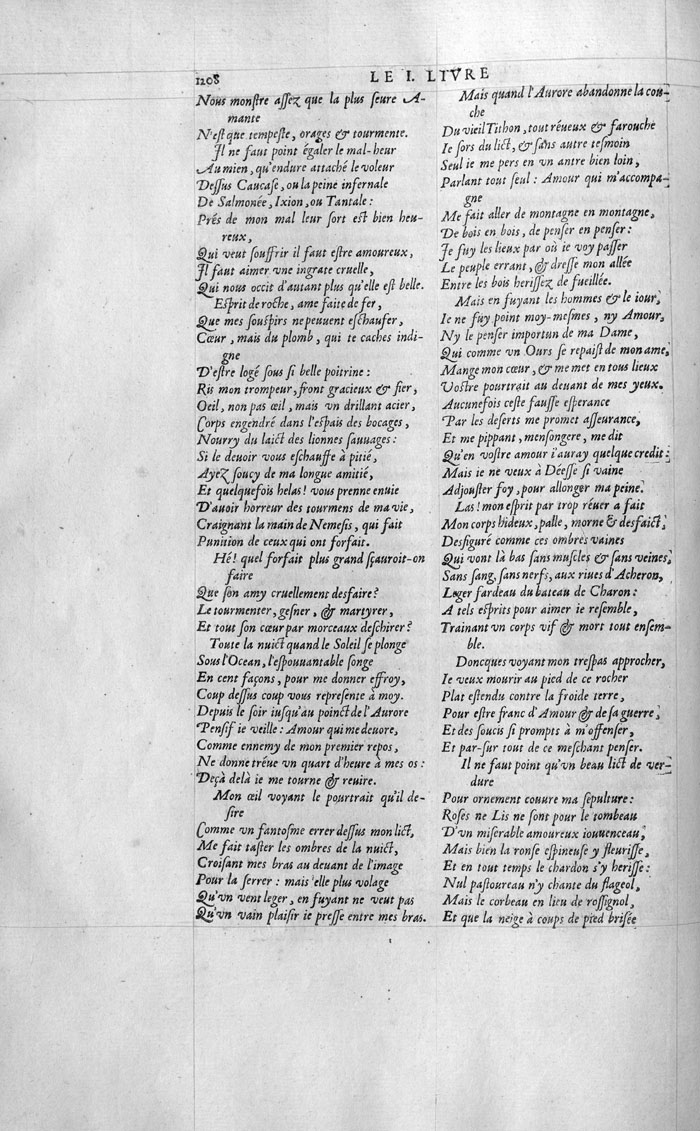 1208
LE I. LIVRE
Nous monſtre aſſez que la plus ſeure A-
mante
N'eſt que tempeſte, orages & tourmente.
Il ne faut point égaler le mal-heur
Au mien, qu'endure attaché le voleur
Deſſus Caucaſe, ou la peine infernale
De Salmonée, Ixion, ou Tantale:
Prés de mon mal leur ſort eſt bien heu-
reux,
Qui veut ſouffrir il faut eſtre amoureux,
Il faut aimer vne ingrate cruelle,
Qui nous occit d'autant plus qu'elle eſt belle.
Eſprit de roche, ame faite de fer,
Que mes ſouſpirs ne peuuent eſchaufer,
Cœur, mais du plomb, qui te caches indi-
gne
D'eſtre logé ſous ſi belle poitrine:
Ris mon trompeur, front gracieux & fier,
Oeil, non pas œil, mais vn drillant acier,
Corps engendré dans l'eſpais des bocages,
Nourry du laict des lionnes ſauuages:
Si le deuoir vous eſchauffe à pitié,
Ayez ſoucy de ma longue amitié,
Et quelquefois helas! vous prenne enuie
D'auoir horreur des tourmens de ma vie,
Craignant la main de Nemeſis, qui fait
Punition de ceux qui ont forfait.
Hé! quel forfait plus grand ſçauroit-on
faire
Que ſon amy cruellement desfaire?
Le tourmenter, geſner, & martyrer,
Et tout ſon cœur par morceaux deſchirer?
Toute la nuict quand le Soleil ſe plonge
Sous l'Ocean, l'eſpouuantable ſonge
En cent façons, pour me donner effroy,
Coup deſſus coup vous repreſente à moy.
Depuis le ſoir iuſqu'au poinct de l'Aurore
Penſif ie veille: Amour qui me deuore,
Comme ennemy de mon premier repos,
Ne donne tréue vn quart d'heure à mes os:
Deçà delà ie me tourne & reuire.
Mon œil voyant le pourtrait qu'il de-
ſire
Comme vn fantoſme errer deſſus mon lict,
Me fait taſter les ombres de la nuict,
Croiſant mes bras au deuant de l'image
Pour la ſerrer: mais elle plus volage
Qu'vn vent leger, en fuyant ne veut pas
Qu'vn vain plaiſir ie preſſe entre mes bras.
Mais quand l'Aurore abandonne la cou-
che
Du vieil Tithon, tout réueux & farouche
Ie ſors du lict, & ſans autre teſmoin
Seul ie me pers en vn antre bien loin,
Parlant tout ſeul: Amour qui m'accompa-
gne
Me fait aller de montagne en montagne,
De bois en bois, de penſer en penſer:
Ie fuy les lieux par où ie voy paſſer
Le peuple errant, & dreſſe mon allée
Entre les bois heriſſez de fueillée.
Mais en fuyant les hommes & le iour,
Ie ne fuy point moy-meſmes, ny Amour,
Ny le penſer importun de ma Dame,
Qui comme vn Ours ſe repaiſt de mon ame,
Mange mon cœur, & me met en tous lieux
Voſtre pourtrait au deuant de mes yeux.
Aucunefois ceſte fauſſe eſperance
Par les deſerts me promet aſſeurance,
Et me pippant, menſongere, me dit
Qu'en voſtre amour i'auray quelque credit:
Mais ie ne veux à Déeſſe ſi vaine
Adiouſter foy, pour allonger ma peine.
Las! mon eſprit par trop réuer a fait
Mon corps hideux, palle, morne & desfaict,
Desfiguré comme ces ombres vaines
Qui vont là bas ſans muſcles & ſans veines,
Sans ſang, ſans nerfs, aux riues d'Acheron,
Leger fardeau du bateau de Charon:
A tels eſprits pour aimer ie reſemble,
Trainant vn corps vif & mort tout enſem-
ble.
Doncques voyant mon treſpas approcher,
Ie veux mourir au pied de ce rocher
Plat eſtendu contre la froide terre,
Pour eſtre franc d'Amour & de ſa guerre,
Et des ſoucis ſi prompts à m'offenſer,
Et par-ſur tout de ce meſchant penſer.
Il ne faut point qu'vn beau lict de ver-
dure
Pour ornement couure ma ſepulture:
Roſes ne Lis ne ſont pour le tombeau
D'vn miſerable amoureux iouuenceau,
Mais bien la ronſe eſpineuſe y fleuriſſe,
Et en tout temps le chardon s'y heriſſe:
Nul paſtoureau n'y chante du flageol,
Mais le corbeau en lieu de roſſignol,
Et que la neige à coups de pied briſée